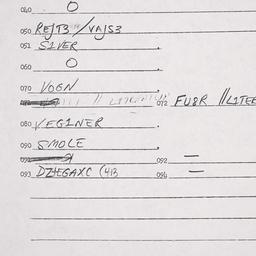 040 O
050 RE/T3 /VA/S3
051 S2VER
060 O
070 VOGN
072 FU8R //LITEE
080 VEGINER
090 SMOLE
092 —
093 DZHEGAXC (4B 094 —